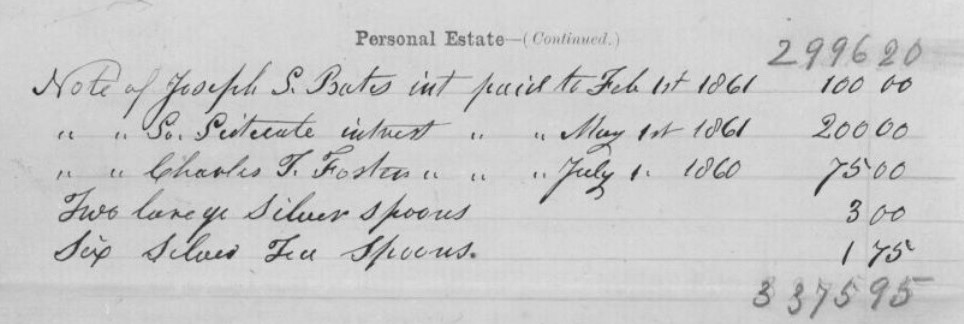 Personal Estate—(Continued.)
2996 20
Note of Joseph S. Bates int paid to Feb 1st 1861 100 00
" " So. Scituate intrest " " May 1st 1861 200 00
" " Charles T. Foster " " " July 1. 1860 75 00
Two large Silver Spoons 3 00
Six Silver Tea Spoons. 1 75
3375 95